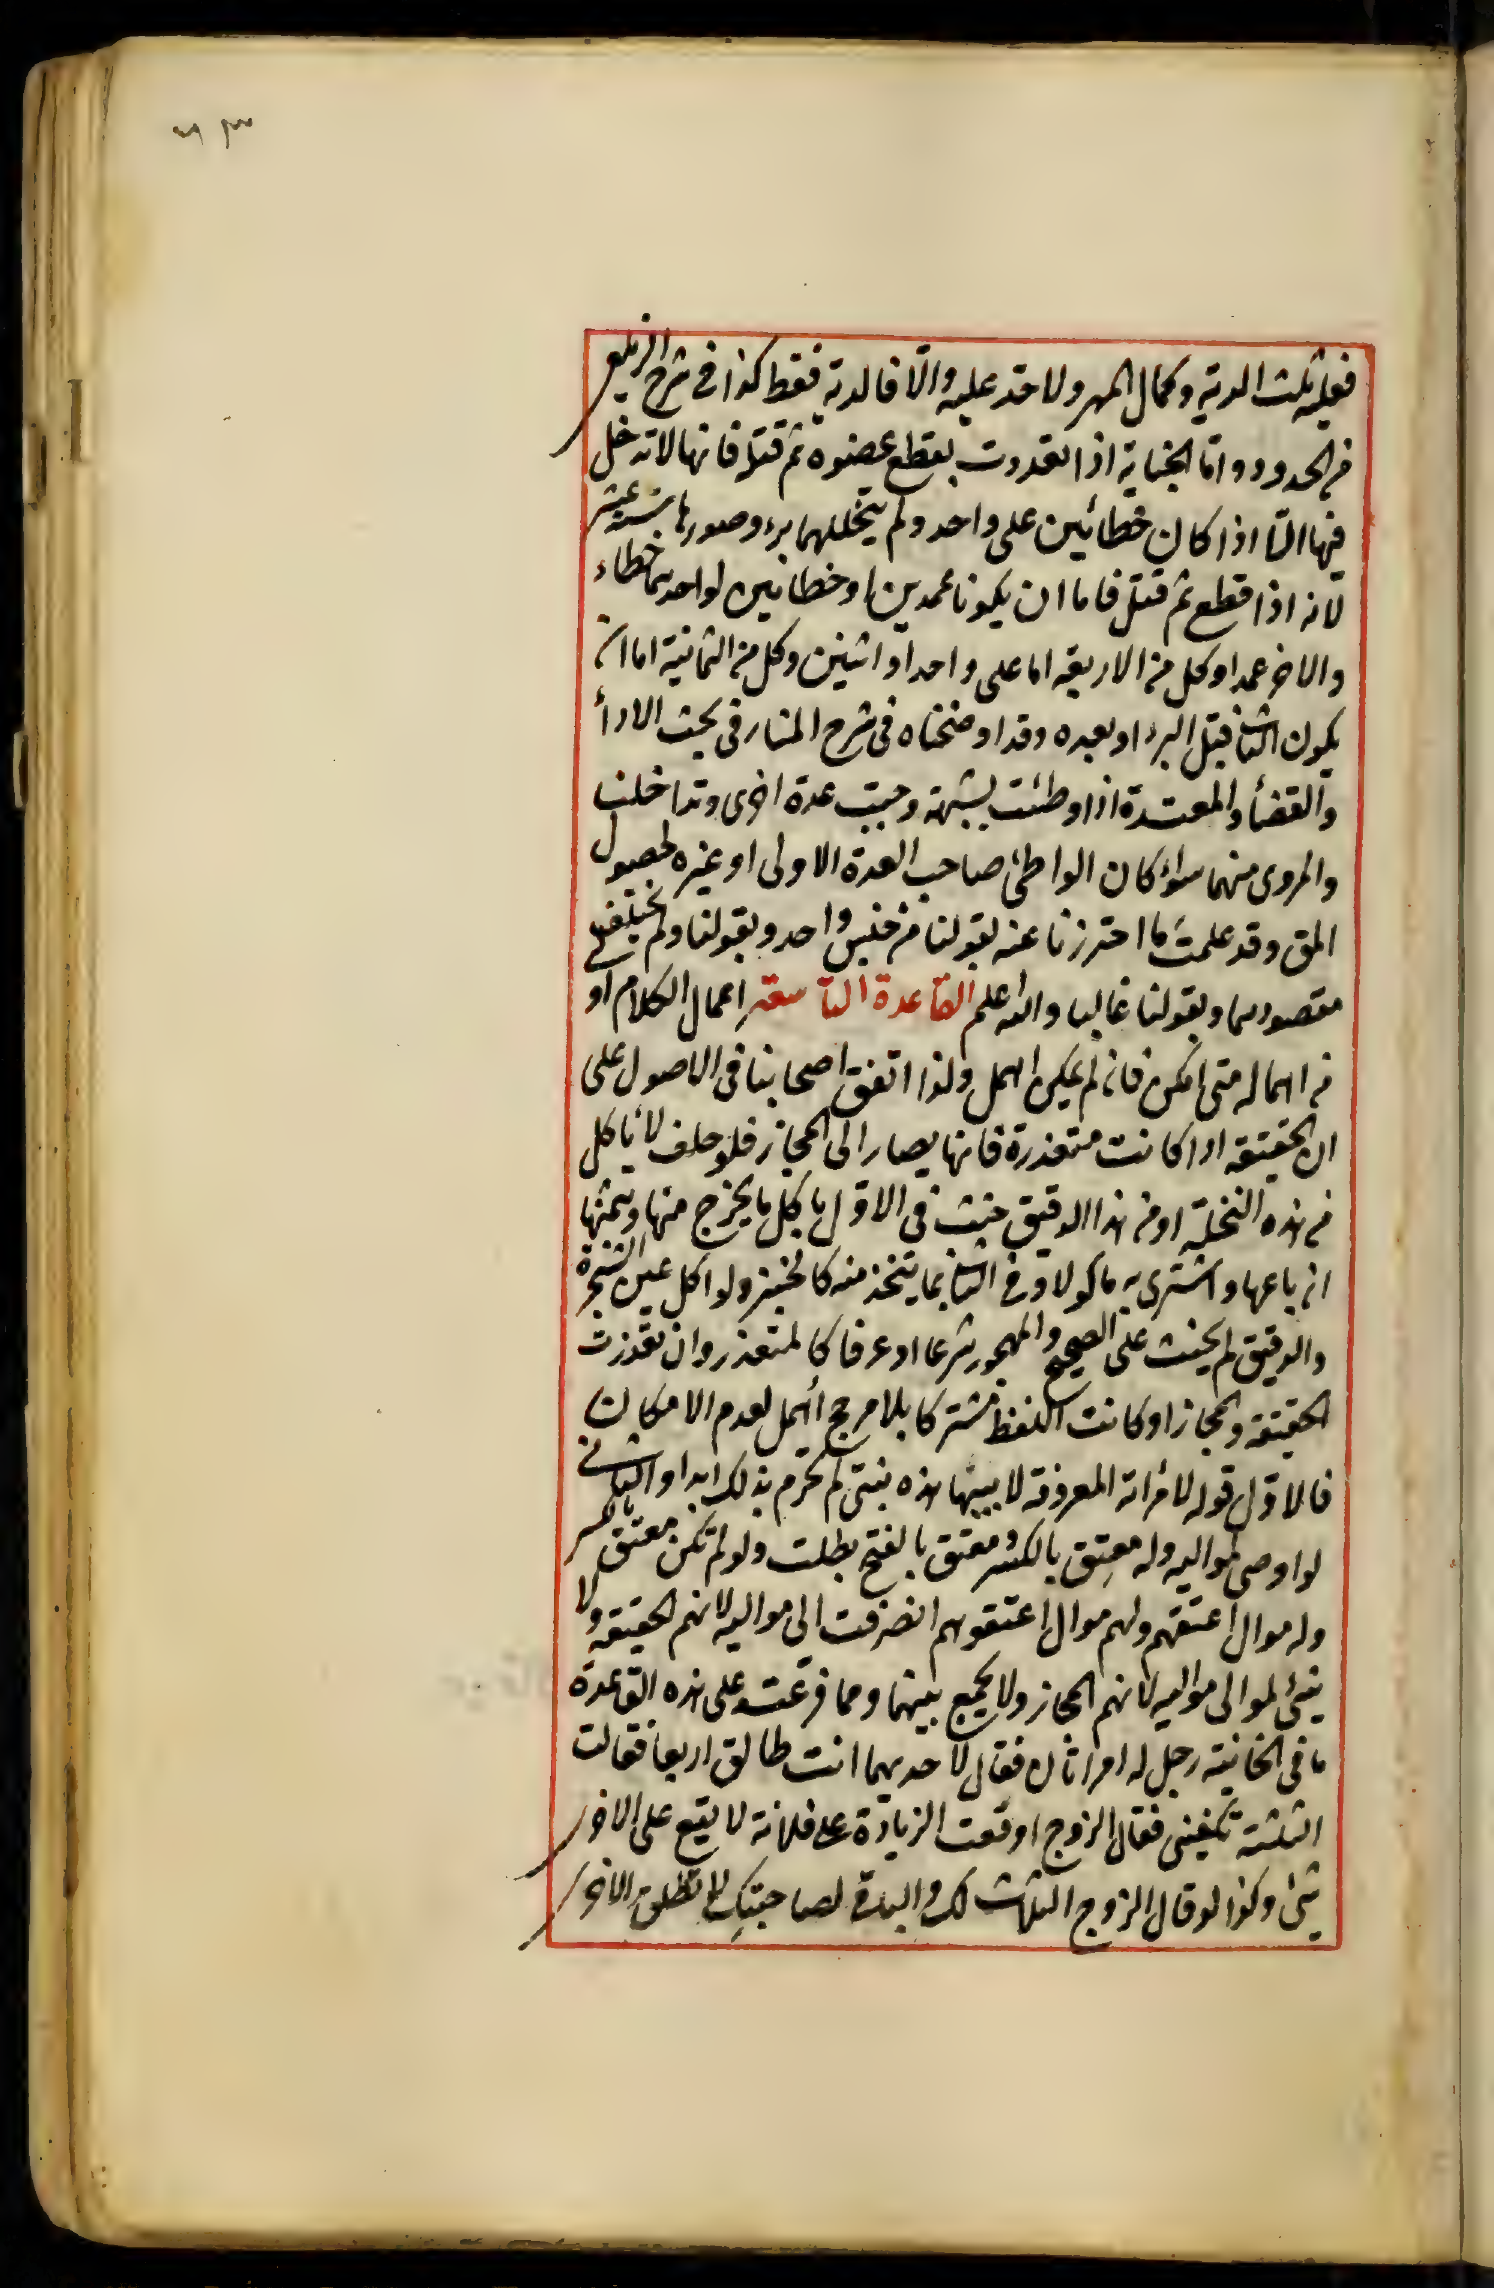 ٦٣
فعليه ثلث الدية وكمال المهر ولا حد عليه والا فالدية فقط كذا فى شرح الزيلعى
من الحدود واما الجناية اذا تعددت بقطع عضوه ثم قتله فانها لا تدخل
فيها الا اذا كان خطائين على واحد ولم يتخللهما برء وصورها ستة عشر
لانه اذا قطع ثم قتل فاما ان يكونا عمدين او خطائين او احدهما خطاء
والاخر عمدا وكل من الاربعة اما على واحد او اثنين وكل من الثمانية اما ان
يكون الثانى قبل البرء او بعده وقد اوضحناه فى شرح المنار فى بحث الاداء
والقضاء والمعتدة اذا وطئت بشبهة وجبت عدة اخرى وتداخلتا
والمروى منهما سواء كان الواطئ صاحب العدة الاولى او غيره لحصول
المق وقد علمت ما احترزنا عنه بقولنا من جنس واحد وبقولنا ولم يختلف
مقصودهما وبقولنا غالبا والله اعلم القاعدة التاسعة اعمال الكلام او
من اهماله متى امكن فان لم يمكن اهمل ولذا اتفق اصحابنا فى الاصول على
ان الحقيقة اذا كانت متعذرة فانها يصار الى المجاز فلو حلف لا ياكل
من هذه النخلة او من هذا الدقيق حنث فى الاول باكل ما يخرج منها وبثمنها
ان باعها واشترى به ماكولا وفى الثانى بما يتخذ منه كالخبز ولو اكل عين الشجرة
والدقيق لم يحنث على الصحيح والمهجور شرعا او عرفا كالمتعذر وان تعذرت
الحقيقة والمجاز او كانت اللفظ مشتركا بلا مرجح أهمل لعدم الامكان
فالاول قوله لامرأته المعروفة لابيها هذه بنتى لم تحرم بذلك ابدا والثانى
لو اوصى لمواليه وله معتِق بالكسر ومعتق بالفتح بطلت ولو لم تكن معتق بالكسر
وله موال اعتقهم ولهم موال اعتقوهم انصرفت الى مواليه لانهم الحقيقة ولا
شئ لموالى مواليه لانهم المجاز ولا يجمع بينهما ومما فرعت على هذه القاعدة
ما فى الخانية رجل له امراتان فقال لاحديهما انت طالق اربعا فقالت
الثلثة تكفينى فقال الزوج اوقعت الزيادة على فلانة لا يقع على الاخرى
شئ وكذا لو قال الزوج الثلاث لك والباقى لصاحبتكِ لا تطلق الاخرى